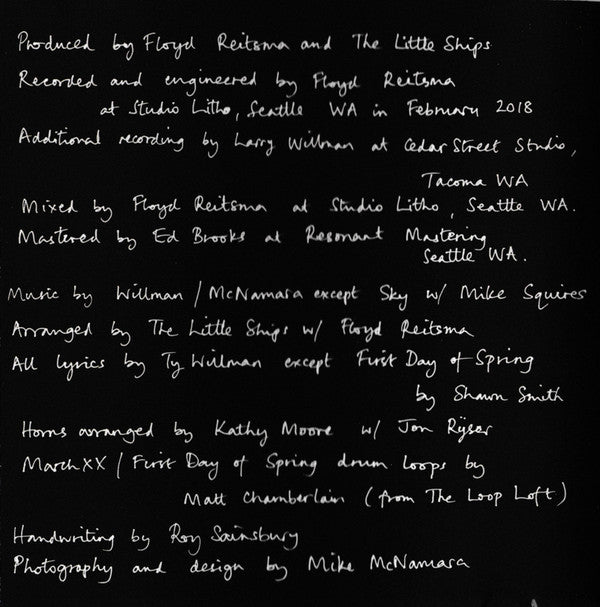 Produced by Floyd Reitsma and The Little Ships
Recorded and engineered by Floyd Reitsma
at Studio Litho, Seattle WA in February 2018
Additional recording by Larry Willman at Cedar Street Studio,
Tacoma WA
Mixed by Floyd Reitsma at Studio Litho, Seattle WA.
Mastered by Ed Brooks at Resonant Mastering
Seattle WA.
Music by Willman / McNamara except Sky w/ Mike Squires
Arranged by The Little Ships w/ Floyd Reitsma
All lyrics by Ty Willman except First Day of Spring
by Shawn Smith
Horns arranged by Kathy Moore w/ Jon Rijser
March XX / First Day of Spring drum loops by
Matt Chamberlain (from The Loop Loft)
Handwriting by Roy Sainsbury
Photography and design by Mike McNamara